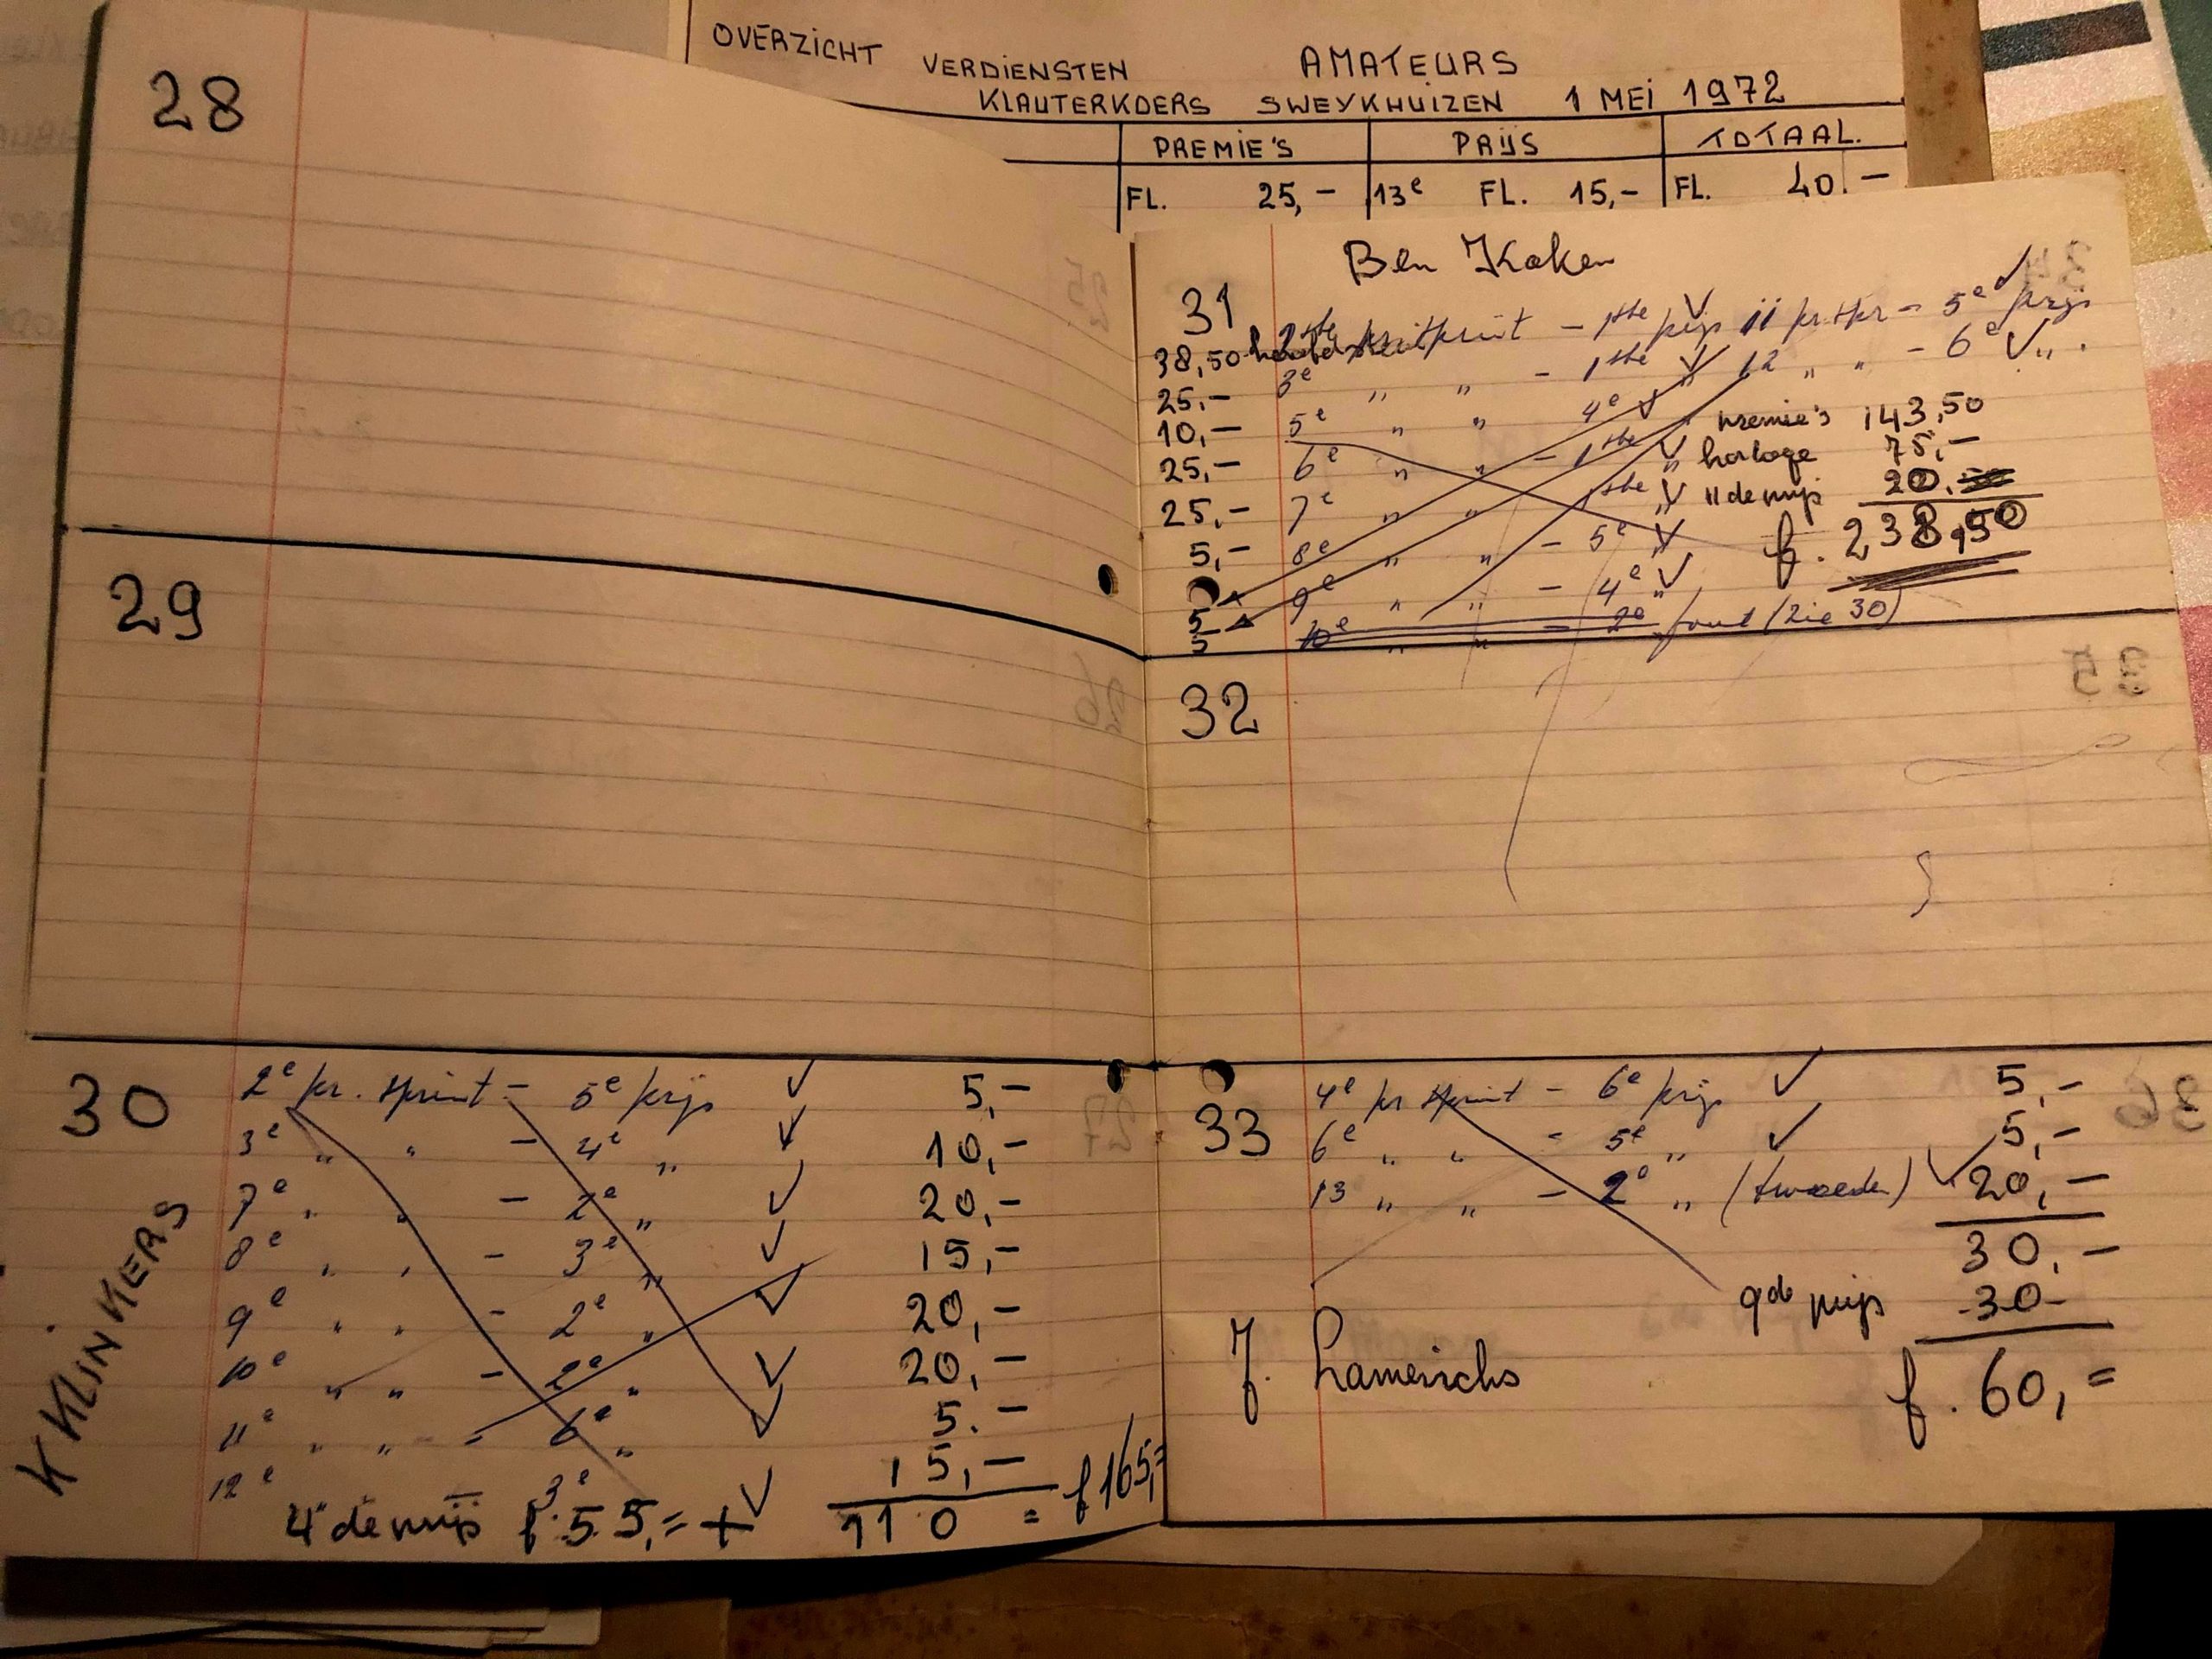 OVERZICHT VERDIENSTEN AMATEURS
KLAUTERKOERS SWEYKHUIZEN 1 MEI 1972
PREMIE'S PRIJS TOTAAL.
FL. 25,- 13e FL. 15,- FL. 40.-
28
29
30
2e pr. sprint - 5e prijs ✓ 5,-
3e " " - 4e " ✓ 10,-
7e " " - 2e " ✓ 20,-
8e " " - 3e " ✓ 15,-
9e " " - 2e " ✓ 20,-
10e " " - 2e " ✓ 20,-
11e " " - 6e " ✓ 5.-
12e - 3e ✓ 15,-
4de prijs f. 55,= + 110 = f 165,=
K KLINKERS
Ben Koken
31
38,50 2de pr sprint - 1ste prijs ✓ 11 pr spr - 5e prijs ✓
25,- 3e " " - 1ste " ✓ 12 " " - 6e ✓ " .
10,- 5e " " 4e ✓ premie's 143,50
25,- 6e " " - 1ste " ✓ horloge 75,-
25,- 7e " " 1ste " ✓ 11de prijs 20,
5,- 8e " " - 5e ✓ f. 238,50
9e " " - 4e " ✓
5 10e " " - 2e fout (zie 30)
5
32
33
4e pr sprint - 6e prijs ✓ 5,-
6e " " - 5e " ✓ 5,-
13 " " - 2e " (tweede) ✓ 20,-
30,-
9de prijs -30-
J. Lameirichs f. 60,=